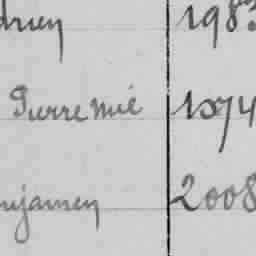 drien 198
Pierre Mié 1074
njamen 2008